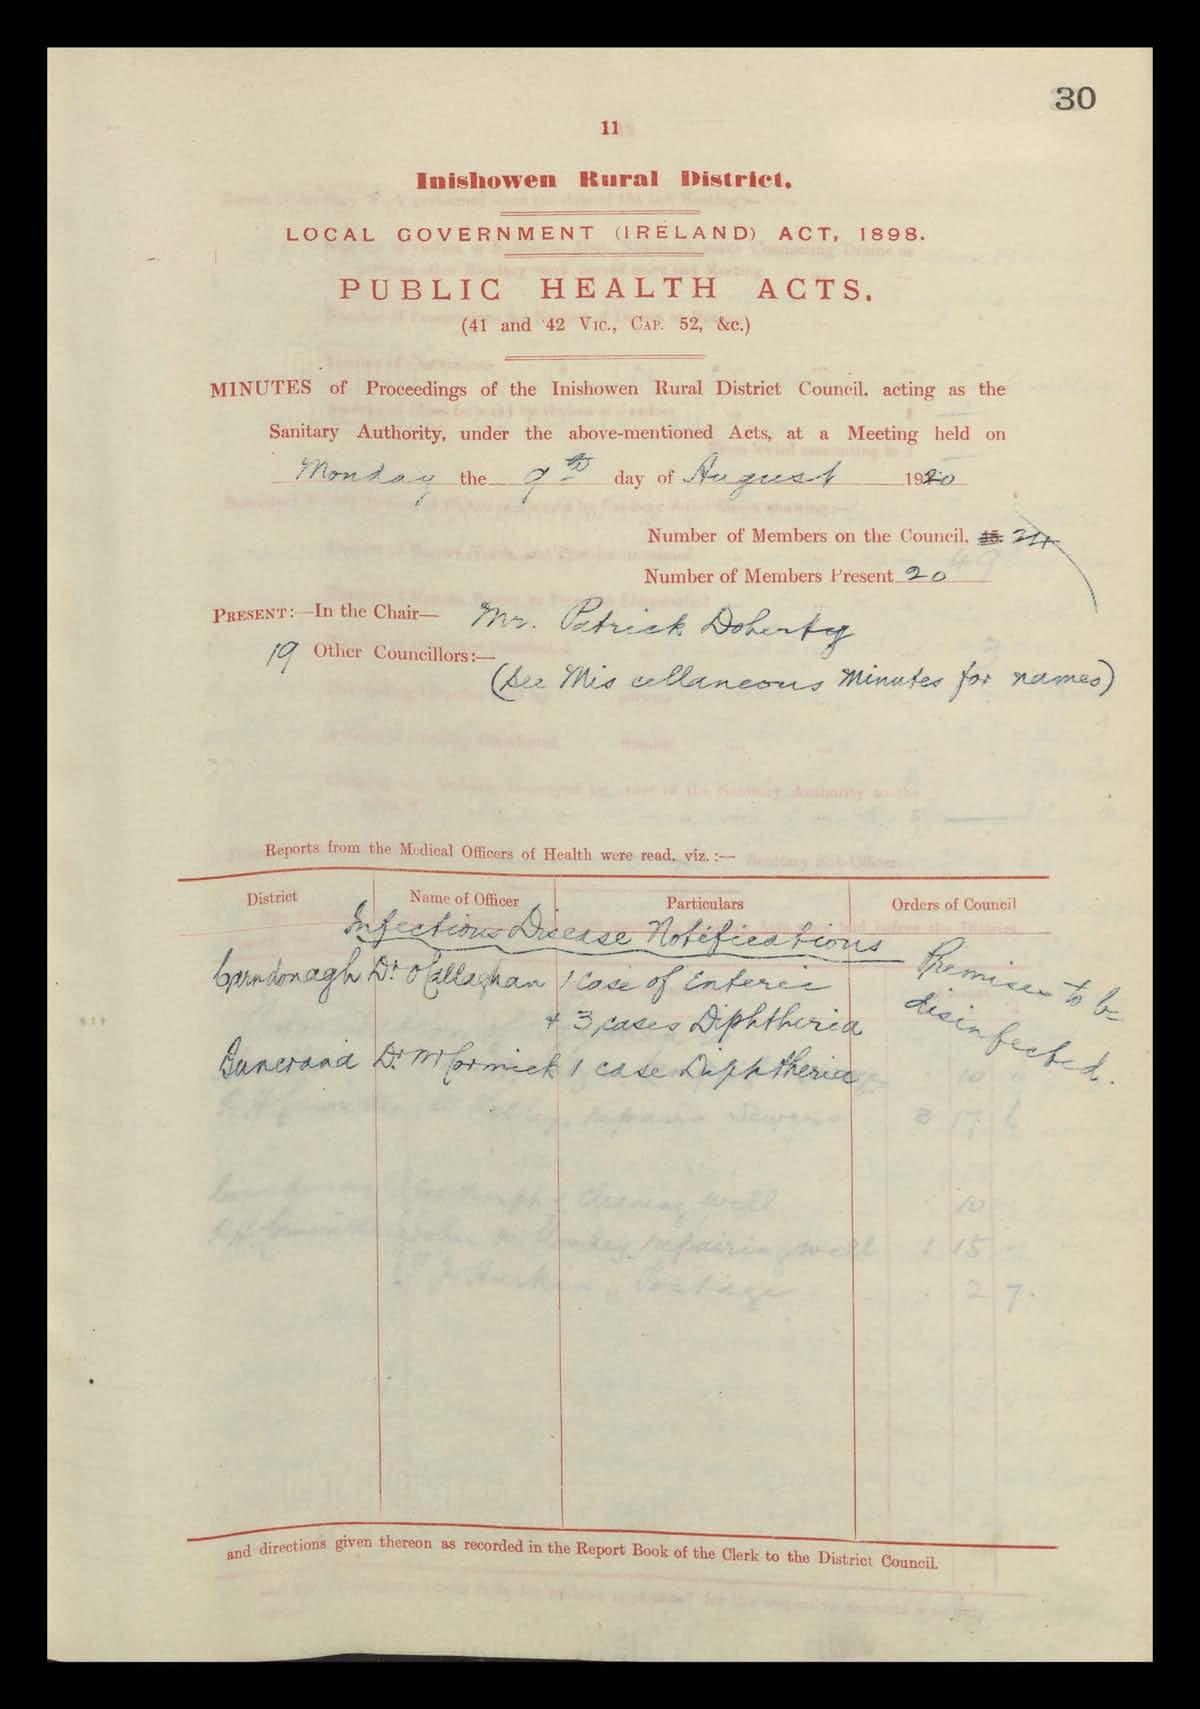 30
11
Inishowen Rural District.
LOCAL GOVERNMENT (IRELAND) ACT, 1898.
PUBLIC HEALTH ACTS.
(41 and 42 Vic., Cap. 52, &c.)
MINUTES of Proceedings of the Inishowen Rural District Council, acting as the
Sanitary Authority, under the above-mentioned Acts, at a Meeting held on
Monday the 9th day of August 1920
Number of Members on the Council, 24
Number of Members Present 20
PRESENT:—In the Chair— Mr. Patrick Doherty
19 Other Councillors:—
(See Miscellaneous Minutes for names)
Reports from the Medical Officers of Health were read, viz.:—
District Name of Officer Particulars Orders of Council
Infectious Disease Notifications
Carndonagh Dr. O'Callaghan 1 case of Enteric Premises to be
& 3 cases Diphtheria disinfected.
Buncrana Dr McCormick 1 case Diphtheria
and directions given thereon as recorded in the Report Book of the Clerk to the District Council.